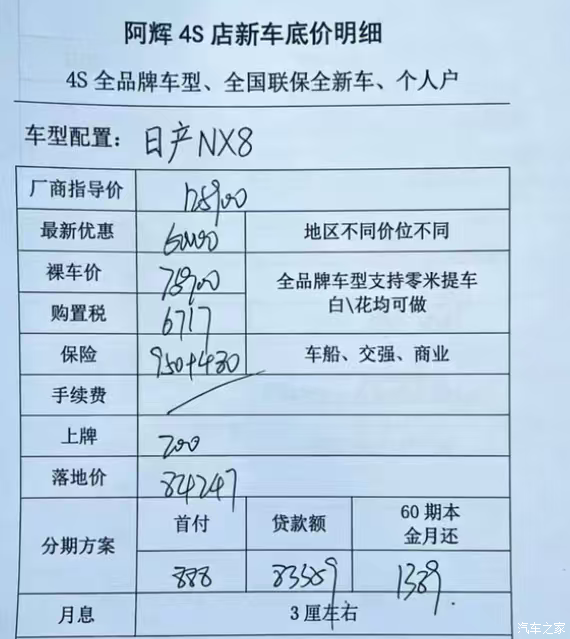 阿辉 4S 店新车底价明细
4S 全品牌车型、全国联保全新车、个人户
车型配置：日产NX8
厂商指导价 125900
最新优惠 50000 地区不同价位不同
裸车价 75900 全品牌车型支持零米提车
购置税 6717 白\花均可做
保险 950+480 车船、交强、商业
手续费
上牌 200
落地价 84247
分期方案 首付 贷款额 60 期本
金月还
888 83359 1389.
月息 3 厘左右
汽车之家